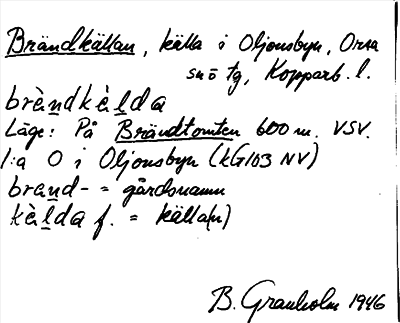 Brändkällan, källa i Oljonsbyn, Orsa
snö tg, Kopparb. l.
brèndkèlda
Läge: På Brändtomten 600 m. VSV.
l:a O i Oljonsbyn (kG103 NV)
brand- = gårdsnamn
kèlda f. = källa(n)
B. Granholm 1946